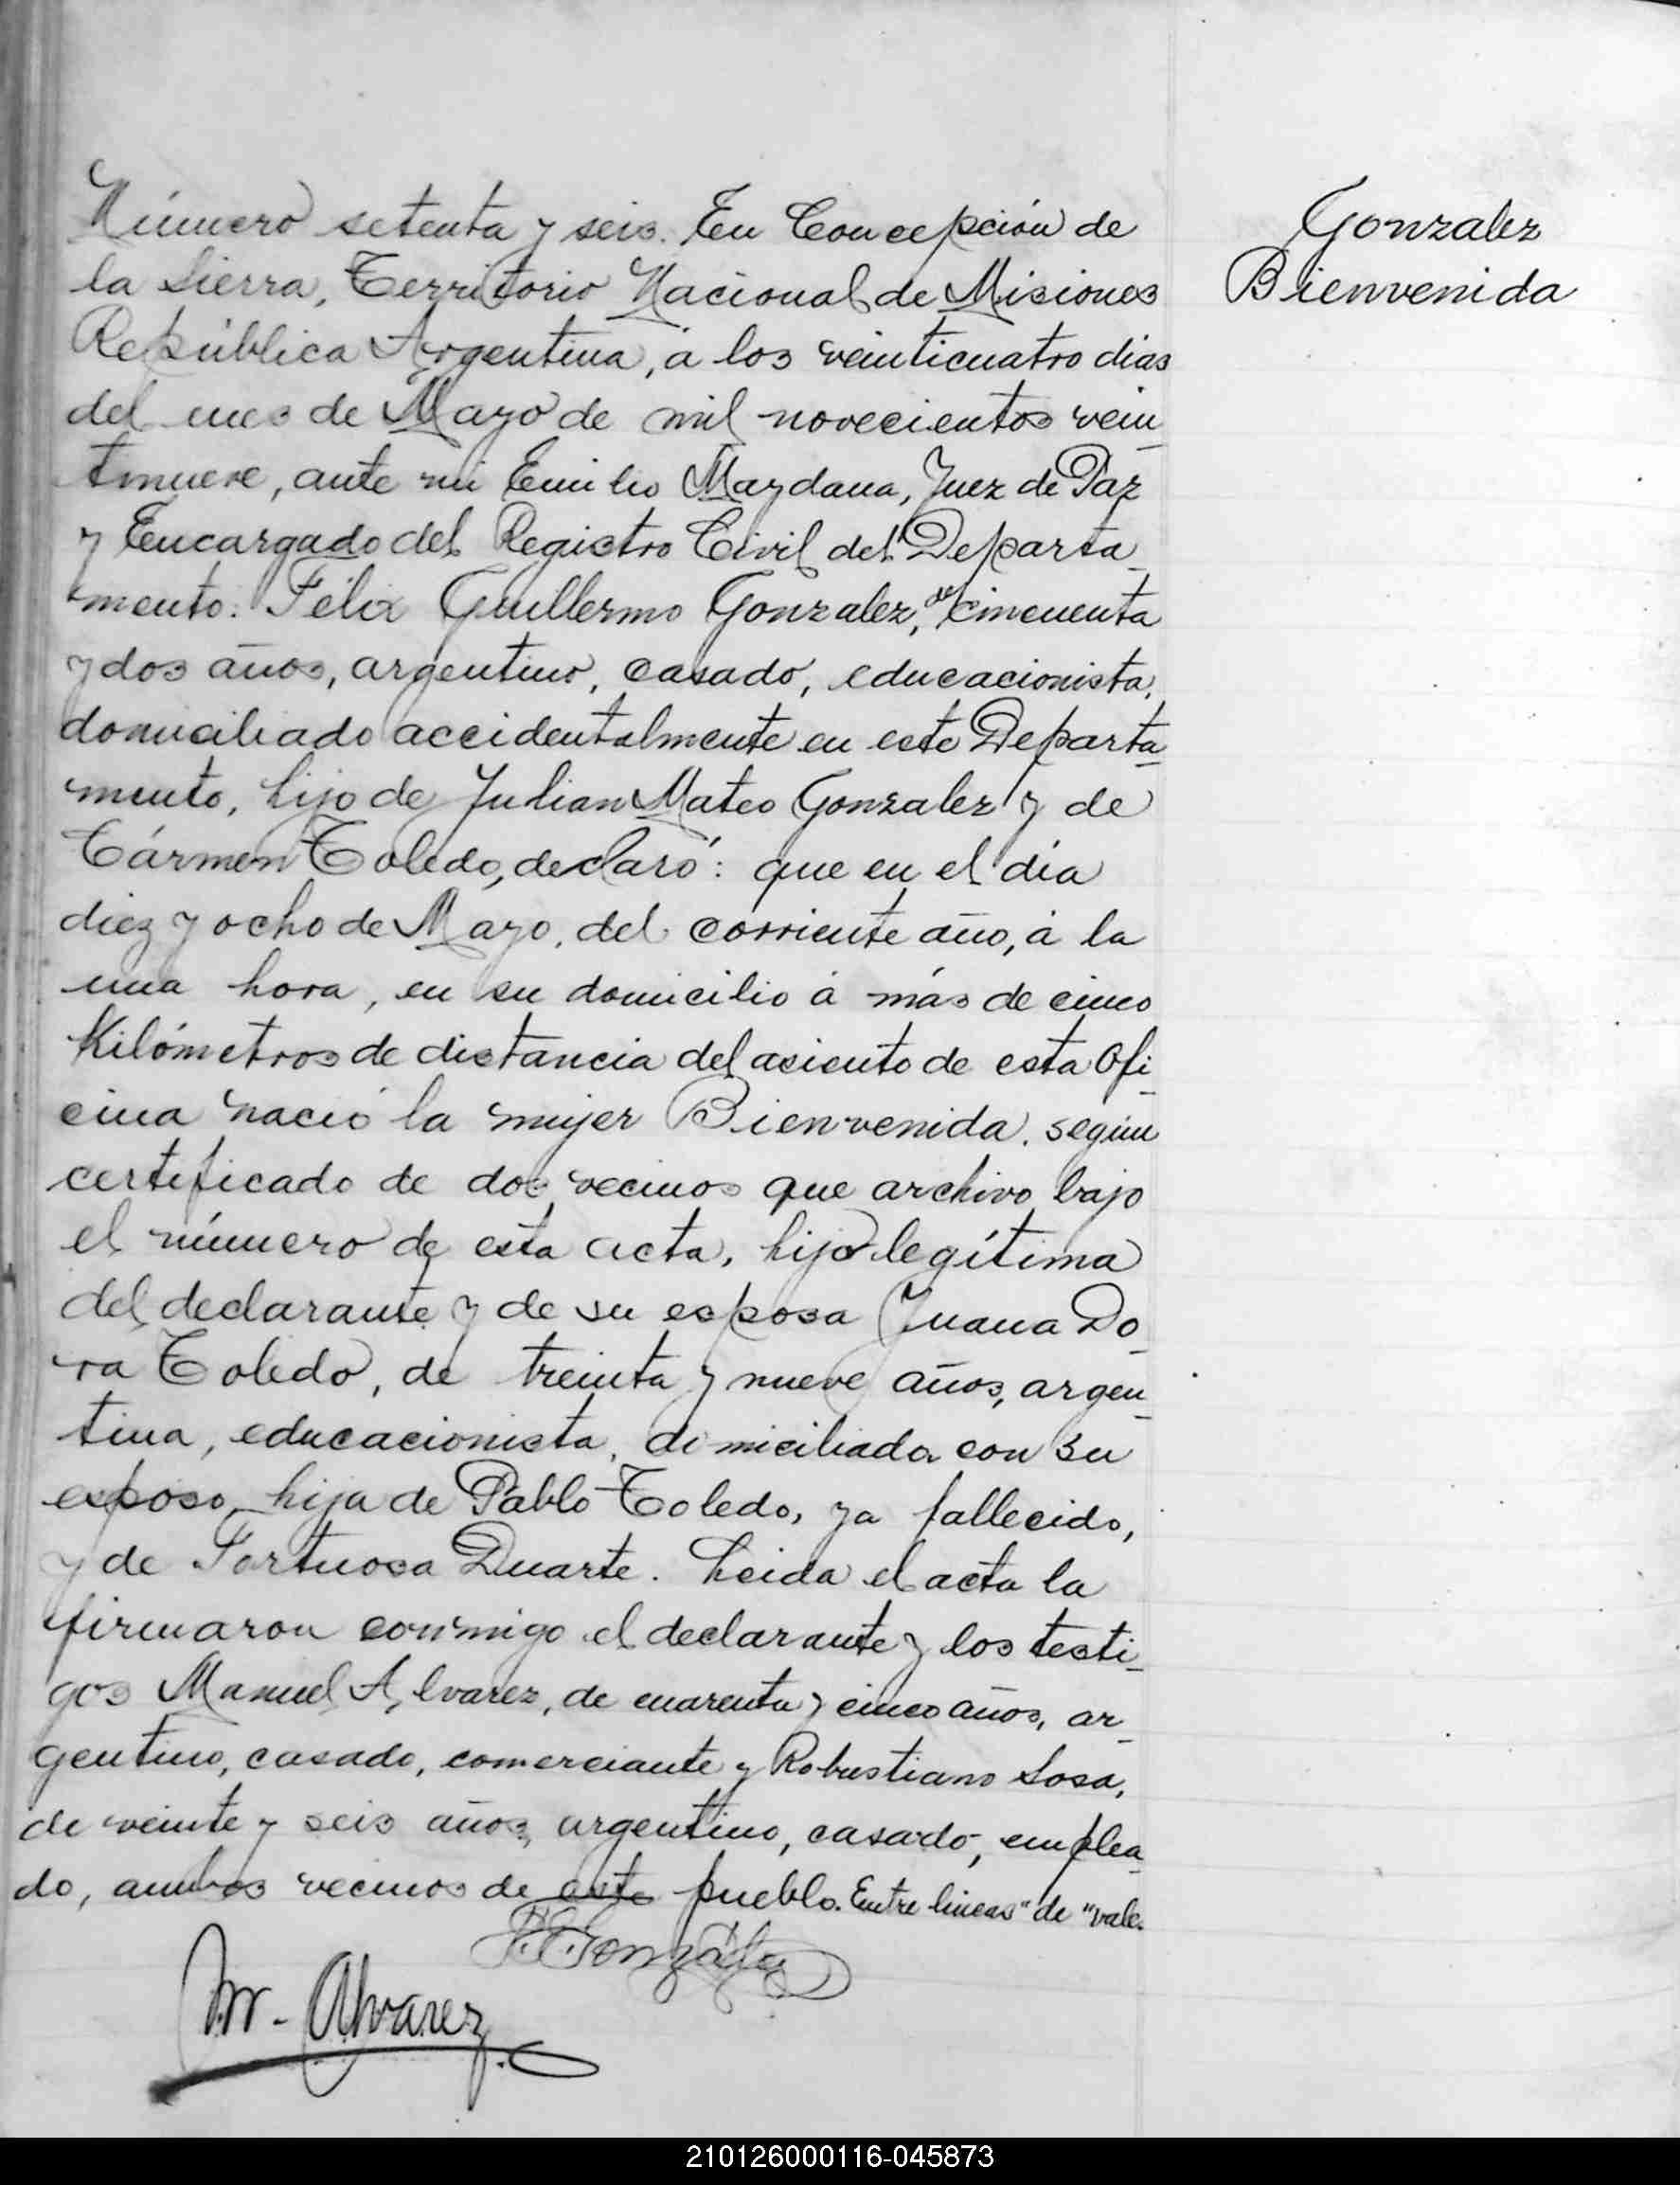 Número setenta y seis. En Concepción de
la Sierra, Territorio Nacional de Misiones
República Argentina, á los veinticuatro dias
del mes de Mayo de mil novecientos vein_
tinueve, ante mi Emilio Maydana, Juez de Paz
y Encargado del Registro Civil del Departa_
mento: Félix Guillermo Gonzalez, de cincuenta
y dos años, argentino, casado, educacionista,
domiciliado accidentalmente en este Departa_
mento, hijo de Julian Mateo Gonzalez y de
Cármen Toledo, declaró: que en el día
diez y ocho de Mayo, del corriente año, á la
una hora, en su domicilio á más de cinco
Kilómetros de distancia del asiento de esta Ofi_
cina nació la mujer Bienvenida, según
certificado de dos vecinos que archivo bajo
el número de esta acta, hija legítima
del declarante y de su esposa Juana Do_
ra Toledo, de treinta y nueve años, argen_
tina, educacionista, domiciliada con su
esposo, hija de Pablo Toledo, ya fallecido,
y de Fortuosa Duarte. Leida el acta la
firmaron conmigo el declarante y los testi_
gos Manuel A, lvarez, de cuarenta y cinco años, ar_
gentino, casado, comerciante y Robustiano Sosa,
de veinte y seis años, argentino, casado, emplea_
do, ambos vecinos de este pueblo. Entre lineas "de" vale.
F. G. González
M. Alvarez
Gonzalez
Bienvenida
210126000116-045873